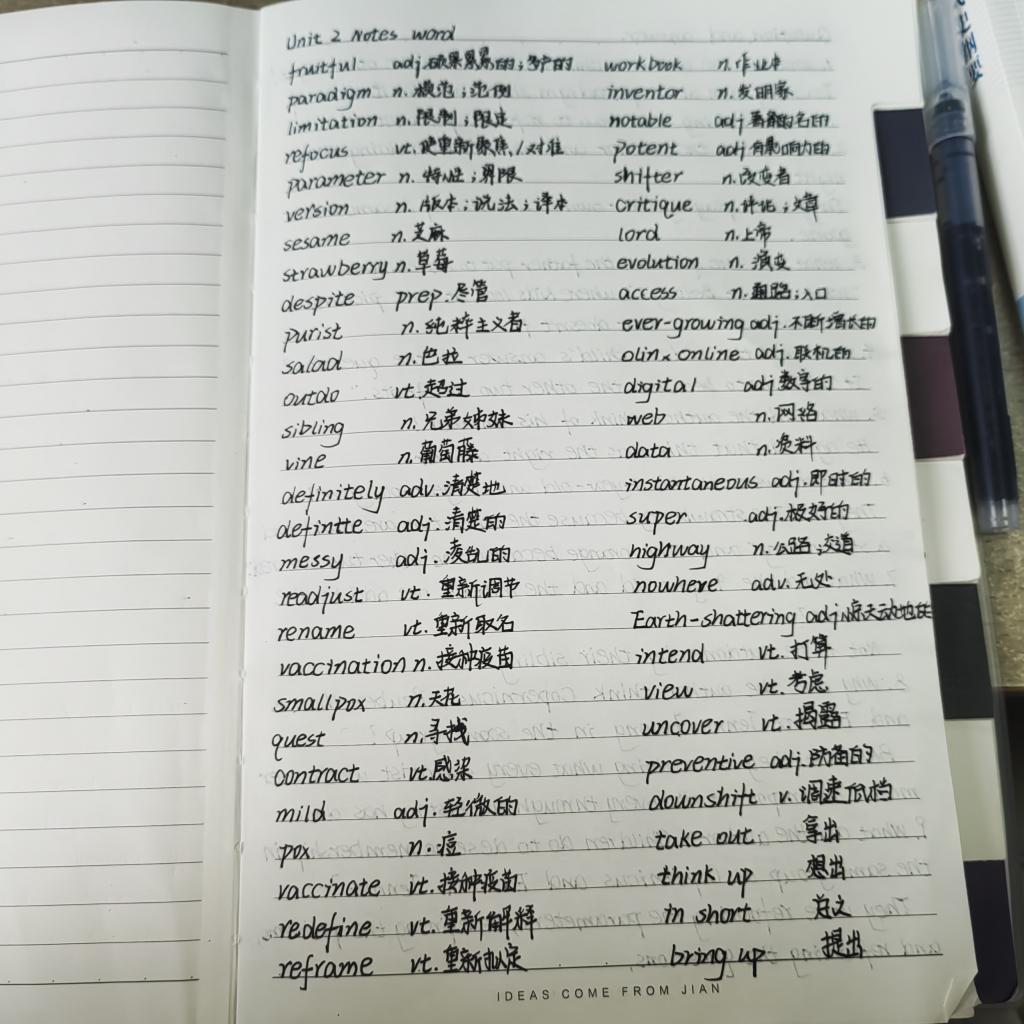 Unit 2 Notes word
fruitful adj.硕果累累的；多产的 workbook n.作业本
paradigm n.模范；范例 inventor n.发明家
limitation n.限制；限定 notable adj的
refocus vt.使重新聚焦/对准 potent adj有影响力的
parameter n.特性；界限 shifter n.改变者
version n.版本；说法；译本 critique n.评论；文章
sesame n.芝麻 lord n.上帝
strawberry n.草莓 evolution n.演变
despite prep.尽管 access n.通路；入口
purist n.纯粹主义者 ever-growing adj.不断增长的
salad n.色拉 online adj.联机的
outdo vt.超过 digital adj数字的
sibling n.兄弟姊妹 web n.网络
vine n.葡萄藤 data n.资料
definitely adv.清楚地 instantaneous adj.即时的
defintte adj.清楚的 super adj.极好的
messy adj.凌乱的 highway n.公路；交道
readjust vt.重新调节 nowhere adv.无处
rename vt.重新取名 Earth-shattering adj.惊天动地的
vaccination n.接种疫苗 intend vt.打算
smallpox n.天花 view vt.考虑
quest n.寻找 uncover vt.揭露
contract vt.感染 preventive adj.防备的
mild adj.轻微的 downshift v.调速低档
pox n.痘 take out 拿出
vaccinate vt.接种疫苗 think up 想出
redefine vt.重新解释 in short 总之
reframe vt.重新拟定 bring up 提出
IDEAS COME FROM JIAN